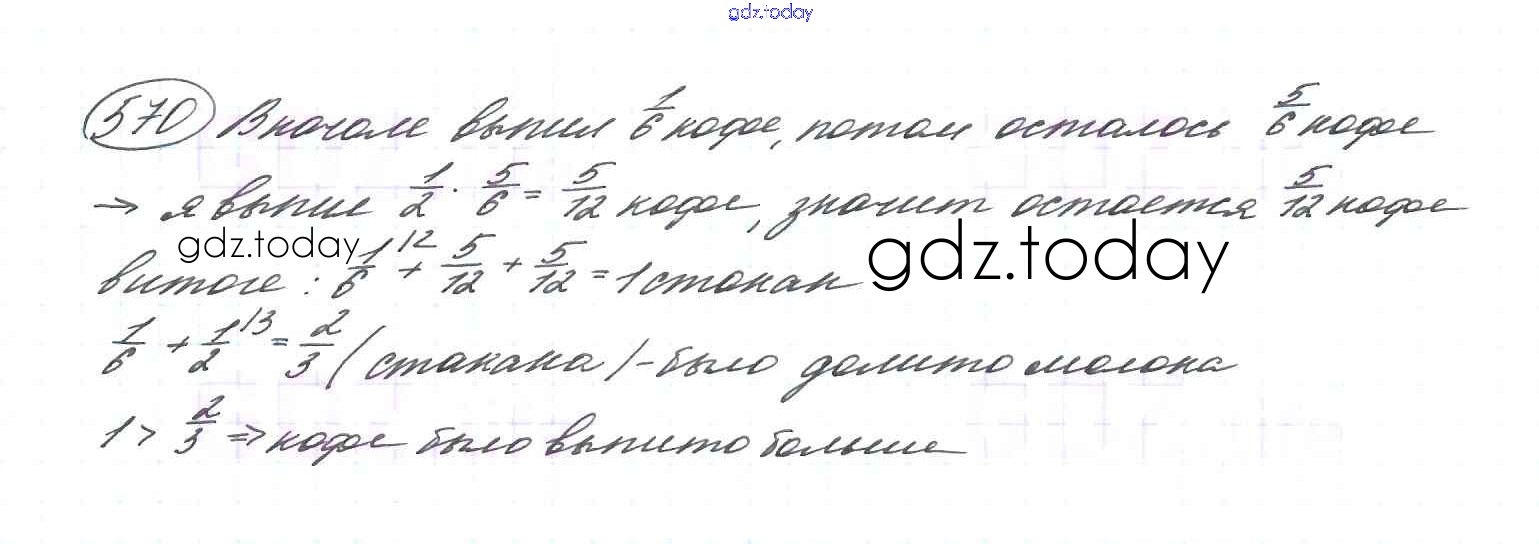 gdz.today
570 Вначале выпил 1/6 кофе, потом осталось 5/6 кофе
→ я выпил 1/2 · 5/6 = 5/12 кофе, значит остается 5/12 кофе
gdz.today
gdz.today
в итоге: 1/6 \2 + 5/12 + 5/12 = 1 стакан
1/6 + 1/2 \3 = 2/3 (стакана) - было долито молока
1 > 2/3 ⇒ кофе было выпито больше